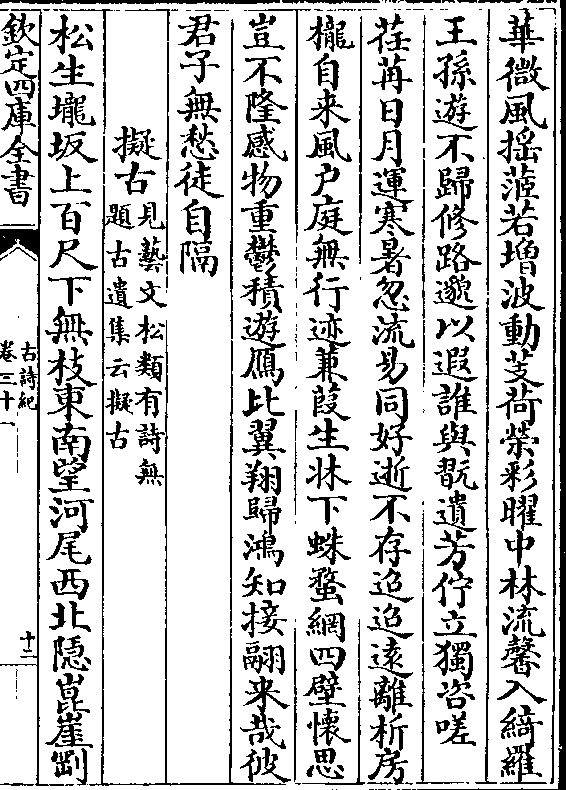 華微風揺蒞若増波動芰荷榮彩曜中林流馨入綺羅
王孫遊不歸修路邈以遐誰與翫遺芳佇立獨咨嗟
荏苒日月運寒暑忽流易同好逝不存迢迢遠離析房
櫳自来風户庭無行迹蒹葭生牀下蛛蝥網四壁懷思
豈不隆感物重鬱積遊鴈比翼翔歸鴻知接翮来哉彼
君子無愁徒自隔
擬古見藝文松類有詩無
題古遺集云擬古
松生壠坂上百尺下無枝東南望河尾西北隠崑崖剛
欽定四庫全書
古詩紀
卷三十一
十二